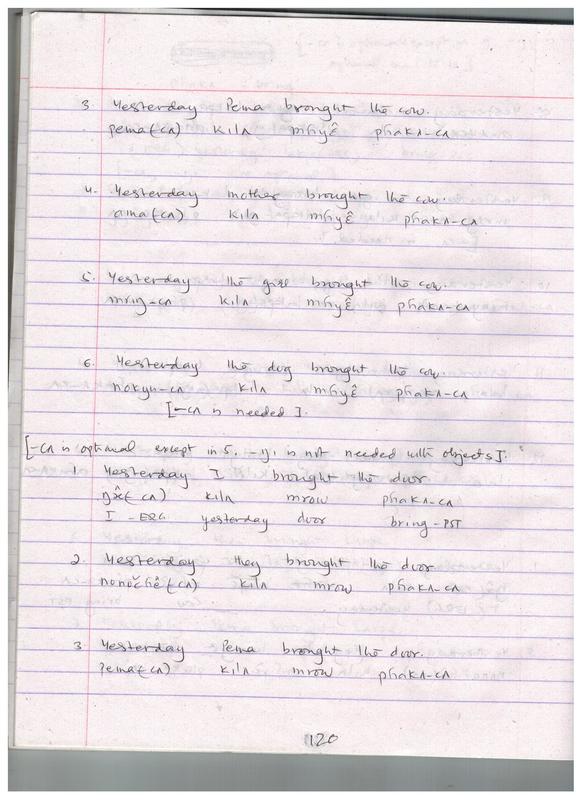 3. Yesterday Pema brought the cow.
pema(-cʌ) kilʌ mɦyɛ̂ phakʌ-cʌ
4. Yesterday mother brought the cow.
ama(-cʌ) kilʌ mɦyɛ̂ phakʌ-cʌ
5. Yesterday the girl brought the cow.
mriŋ-cʌ kilʌ mɦyɛ̂ phakʌ-cʌ
6. Yesterday the dog brought the cow.
nokyu-cʌ kilʌ mɦyɛ̂ phakʌ-cʌ
[-cʌ is needed].
[-cʌ is optional except in 5. -ŋi is not needed with objects].
1. Yesterday I brought the door.
(-cʌ) kilʌ mrow phakʌ-cʌ
I -ERG yesterday door bring-PST
2. Yesterday they brought the door.
(-cʌ) kilʌ mrow phakʌ-cʌ
3. Yesterday Pema brought the door.
Pema(-cʌ) kilʌ mrow phakʌ-cʌ
120